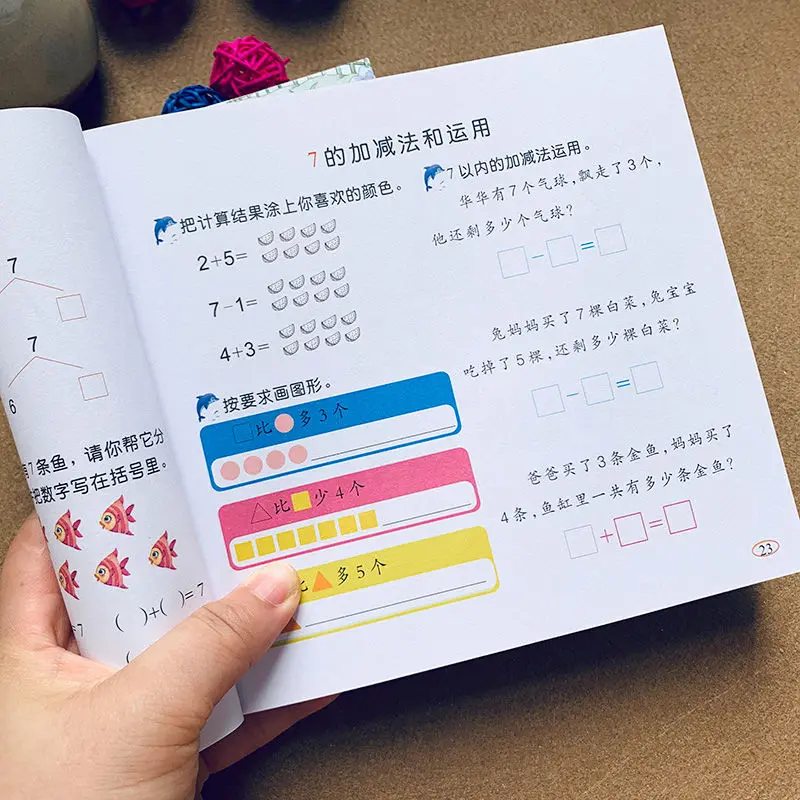 7
7
6
7条鱼，请你帮它分
把数字写在括号里。
=7
( )+( )=7
(
7的加减法和运用
把计算结果涂上你喜欢的颜色。
2+5=
7-1=
4+3=
按要求画图形。
□比●多3个
△比■少4个
比▲多5个
7以内的加减法运用。
华华有7个气球，飘走了3个，
他还剩多少个气球？
□-□=□
兔妈妈买了7棵白菜，兔宝宝
吃掉了5棵，还剩多少棵白菜？
□-□=□
爸爸买了3条金鱼，妈妈买了
4条，鱼缸里一共有多少条金鱼？
□+□=□
23